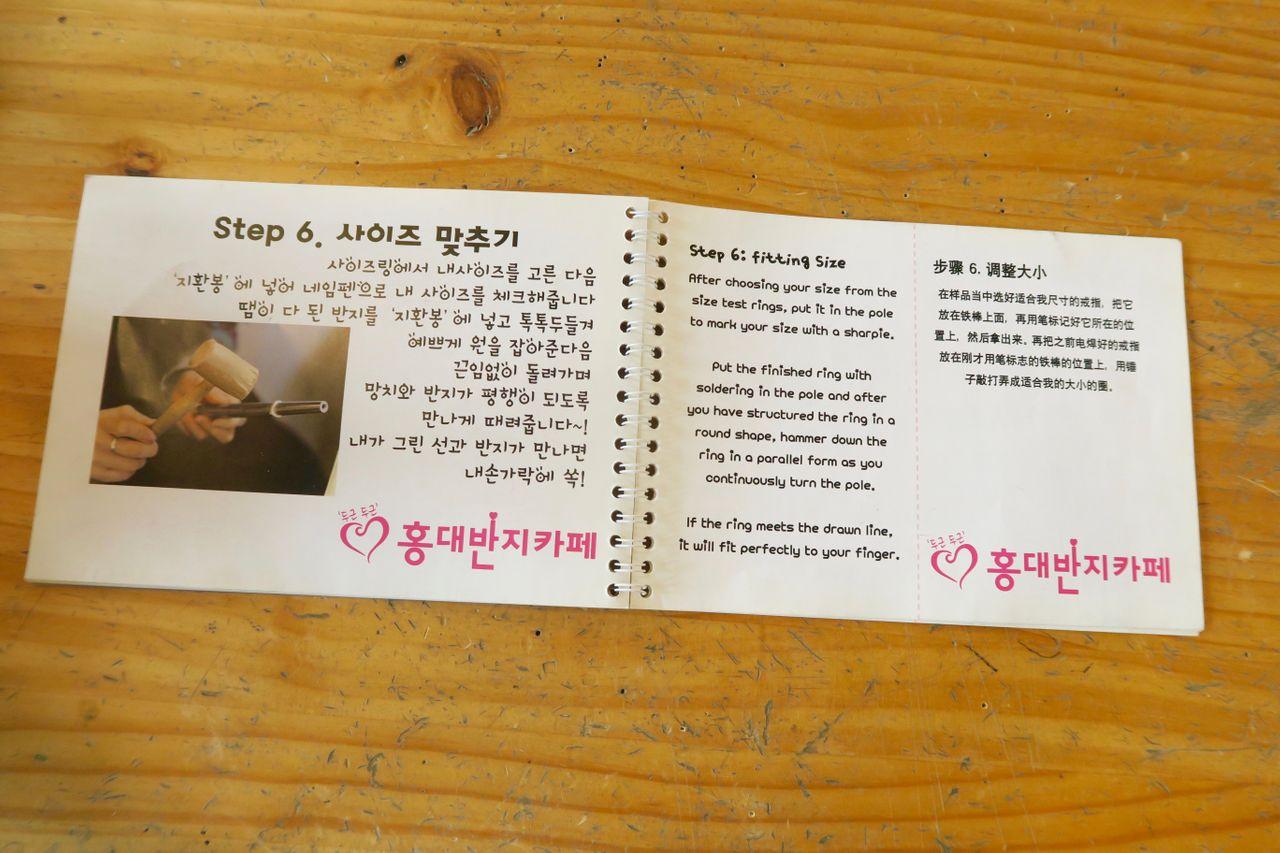 Step 6. 사이즈 맞추기
사이즈링에서 내사이즈를 고른 다음
'지환봉'에 넣어 네임펜으로 내 사이즈를 체크해줍니다
땜이 다 된 반지를 '지환봉'에 넣고 톡톡두들겨
예쁘게 원을 잡아준다음
끈임없이 돌려가며
망치와 반지가 평행이 되도록
만나게 때려줍니다~!
내가 그린 선과 반지가 만나면
내손가락에 쏙!
'두근 두근'
홍대반지카페
Step 6: fitting Size
After choosing your size from the
size test rings, put it in the pole
to mark your size with a sharpie.
Put the finished ring with
soldering in the pole and after
you have structured the ring in a
round shape, hammer down the
ring in a parallel form as you
continuously turn the pole.
If the ring meets the drawn line,
it will fit perfectly to your finger.
步骤 6. 调整大小
在样品当中选好适合我尺寸的戒指，把它
放在铁棒上面，再用笔标记好它所在的位
置上，然后拿出来。再把之前电焊好的戒指
放在刚才用笔标志的铁棒的位置上，用锤
子敲打弄成适合我的大小的圈。
'두근 두근'
홍대반지카페